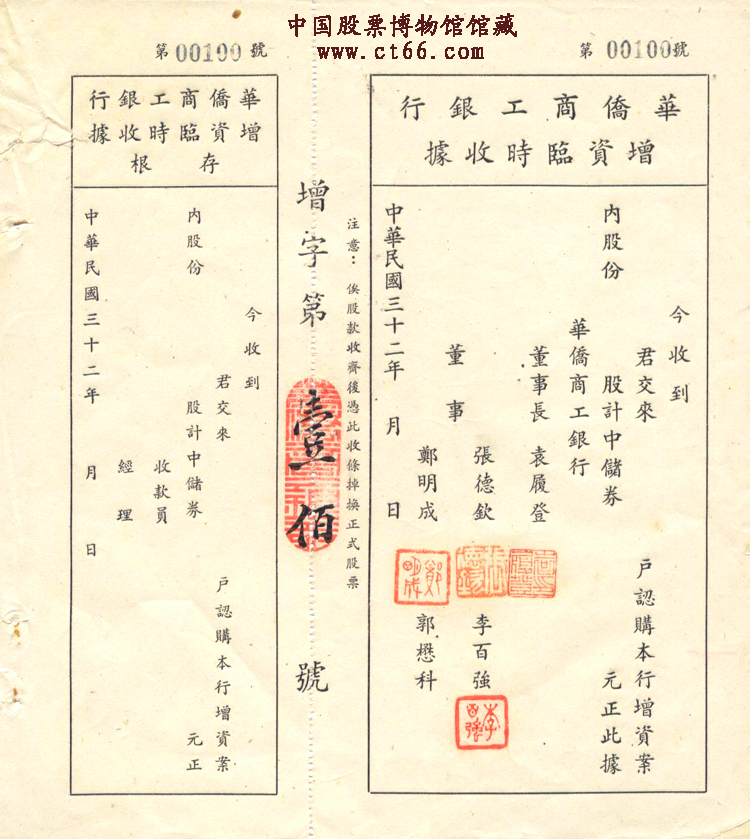 中国股票博物馆馆藏
www.ct66.com
第 00100 號
華僑商工銀行
增資臨時收據
今收到
君交來 戶認購本行增資案
內股份 股計中儲券 元正此據
華僑商工銀行
董事長 袁履登
董事 張德欽 李百強
鄭明成 郭懋科
中華民國三十二年 月 日
注意：俟股款收齊後憑此收條掉換正式股票
增字第壹佰號
第 00100 號
華僑商工銀行
增資臨時收據
存根
今收到
君交來 戶認購本行增資案
內股份 股計中儲券 元正
收款員
經理
中華民國三十二年 月 日